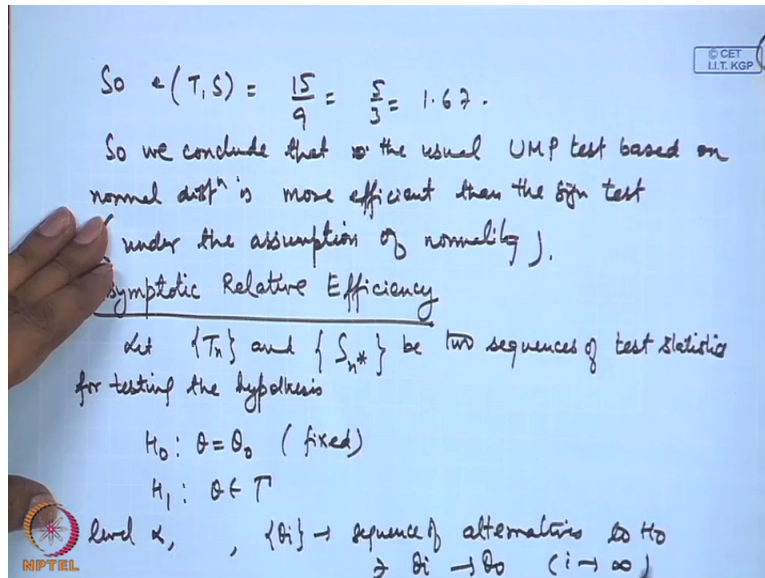 © CET
I.I.T. KGP
So e(T,S) = 15/9 = 5/3 = 1.67.
So we conclude that the usual UMP test based on
normal distⁿ is more efficient than the sign test
(under the assumption of normality).
symptotic Relative Efficiency
Let {Tn} and {Sn*} be two sequences of test statistic
for testing the hypothesis
H₀: θ = θ₀ (fixed)
H₁: θ ∈ Γ
level α, , {θi} → sequence of alternatives to H₀
∋ θi → θ₀ (i → ∞)
NPTEL